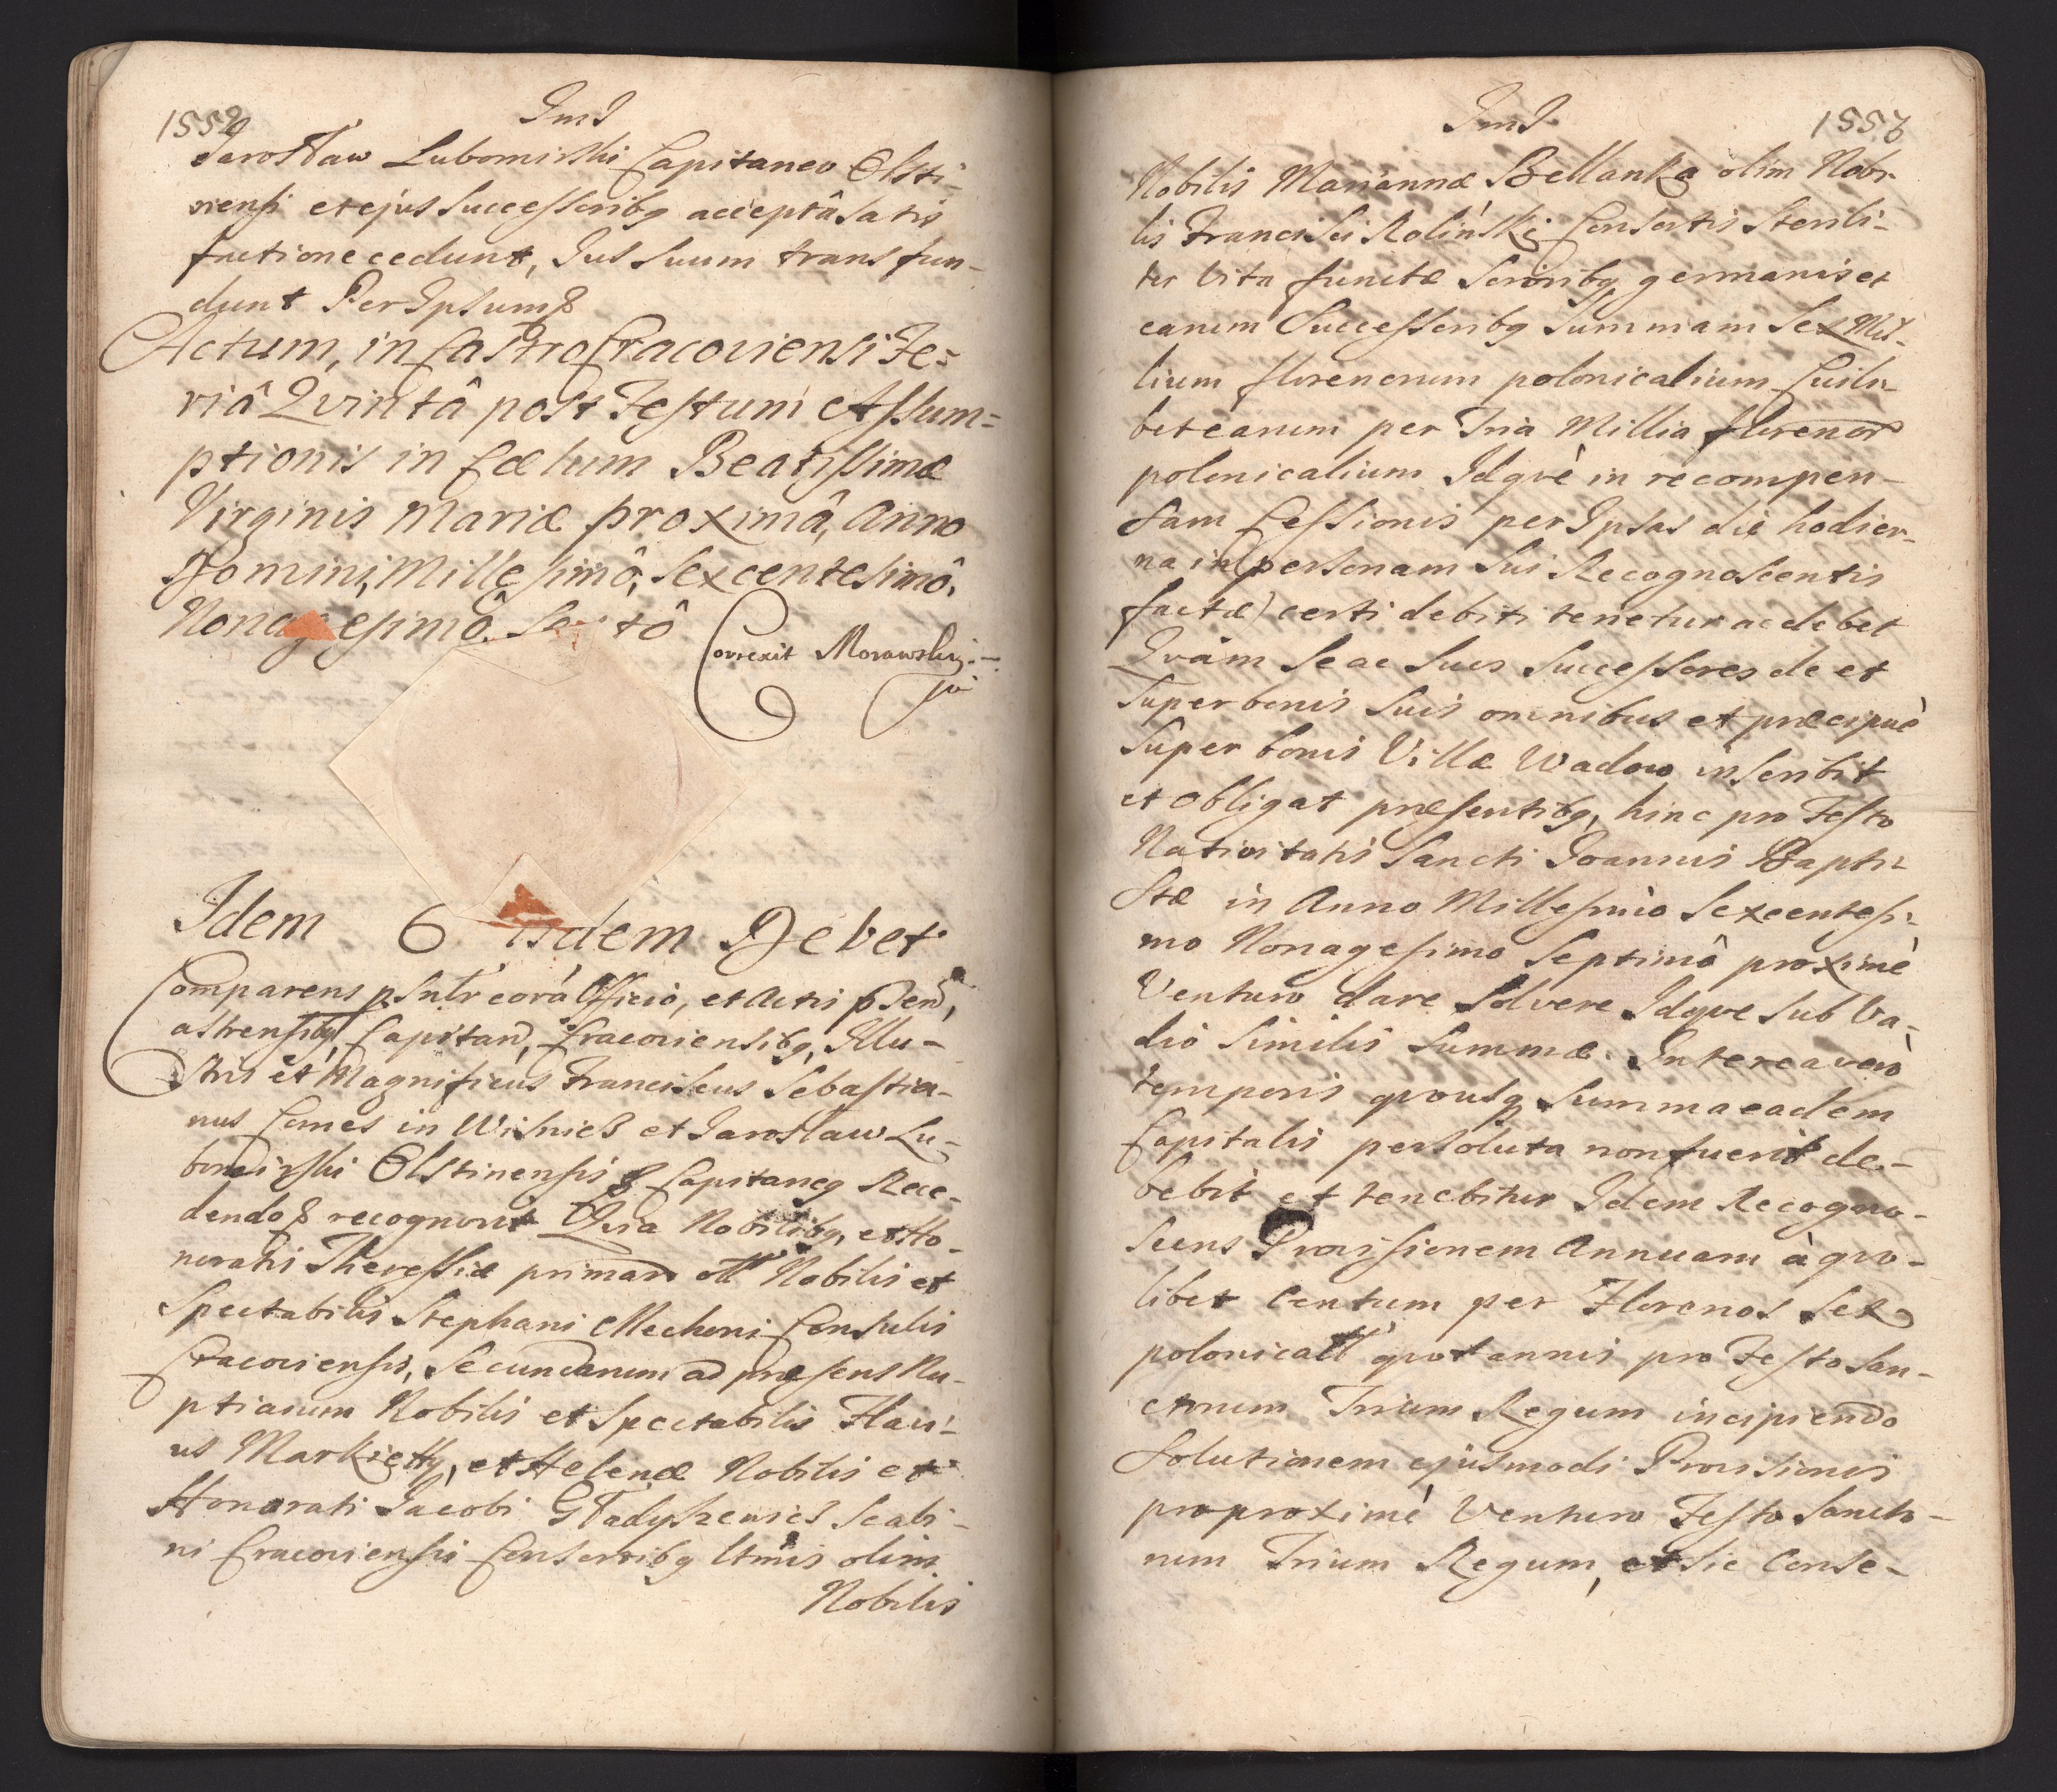 1552
ImJ
Jarosław Lubomirski Capitaneo Olsti-
nensi et ejus Successoribq acceptâ satis
factione cedunt, Jus suum transfun-
dunt Per Ipsum
Actum, in Castro Cracoviensi Fe=
riâ Qvintâ post Festum Assum=
ptionis in Cælum Beatissimæ
Virginis Mariæ proximâ, Anno
Domini, Millesimô, Sexcentesimô,
Nonagesimô. Sextô
Correxit Morawskij
Idem Eisdem Debet
Comparens psntr corâ Officio, et Actis psen,
astrensibq Capitan, Cracoviensibq, Illu-
stris et Magnificus Franciscus Sebastia-
nus Comes in Wisnicz et Jarosław Lu-
bomirski Olstinensis Capitaneq Rece-
dendo recognovit Quia Nobilibq, et Ho-
noratis Theressiæ primar Nobilis et
Spectabilis Stephani Mechoni Consulis
Cracoviensis, Secundarum ad præsens Nu-
ptiarum Nobilis et Spectabilis Flavi-
us et Helenæ Nobilis et
Honorati Jacobi Gładyszewicz Scabi-
ni Cracoviensis Consortibq ltmis olim
Nobilis
ImJ
1553
Nobilis Mariannæ Bellanka olim Nobi-
lis Francisci Roliński Consortis Sterili-
ter Vita functæ Sororibq germanis et
earum Successoribq Summam Sex Mil-
lium florenorum polonicalium Cuili-
bet earum per Tria Millia florenor
polonicalium Idqvè in recompen-
sam Cessionis per Ipsas die hodier-
na in personam Sui Recognoscentis
factæ) certi debiti tenetur ac debet
Qvam Se ac Suos Successores de et
Super bonis Suis omnibus et præcipuè
Super bonis Villæ Wadow inscribit
et obligat præsentibq, hinc pro Festo
Nativitatis Sancti Joannis Bapti-
stæ in Anno Millesimo Sexcentesi-
mo Nonagesimo Septimô proximè
Venturo dare Solvere Idqve sub Va-
dio Similis Summæ. Interea verò
temporis qvousq Summa eadem
Capitalis persoluta non fuerit de-
bebit et tenebitur Idem Recogno-
scens Provisionem Annuam à qvo-
libet Centum per Florenos Sex
polonicall qvotannis pro Festo San-
ctorum Trium Regum incipiendo
Solutionem ejusmodi Provisionis
pro proximè Venturo Festo Sancto-
rum Trium Regum, et sic Conse-